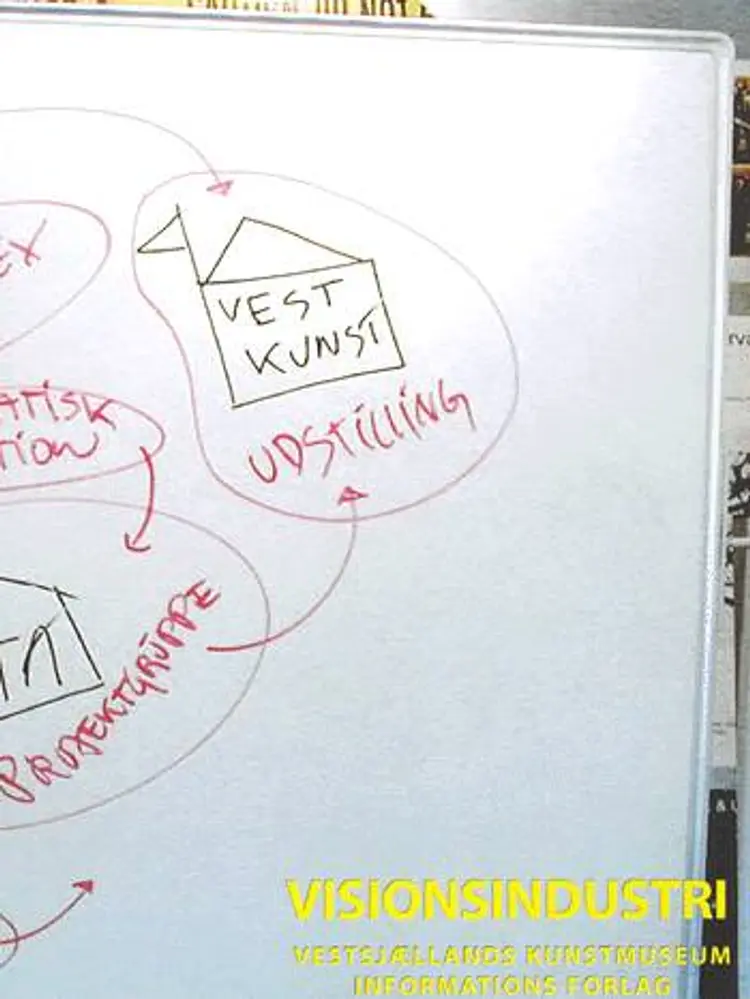 VEST
KUNST
UDSTILLING
ATISK
TION
PROJEKTGRUPPE
VISIONSINDUSTRI
VESTSJÆLLANDS KUNSTMUSEUM
INFORMATIONS FORLAG